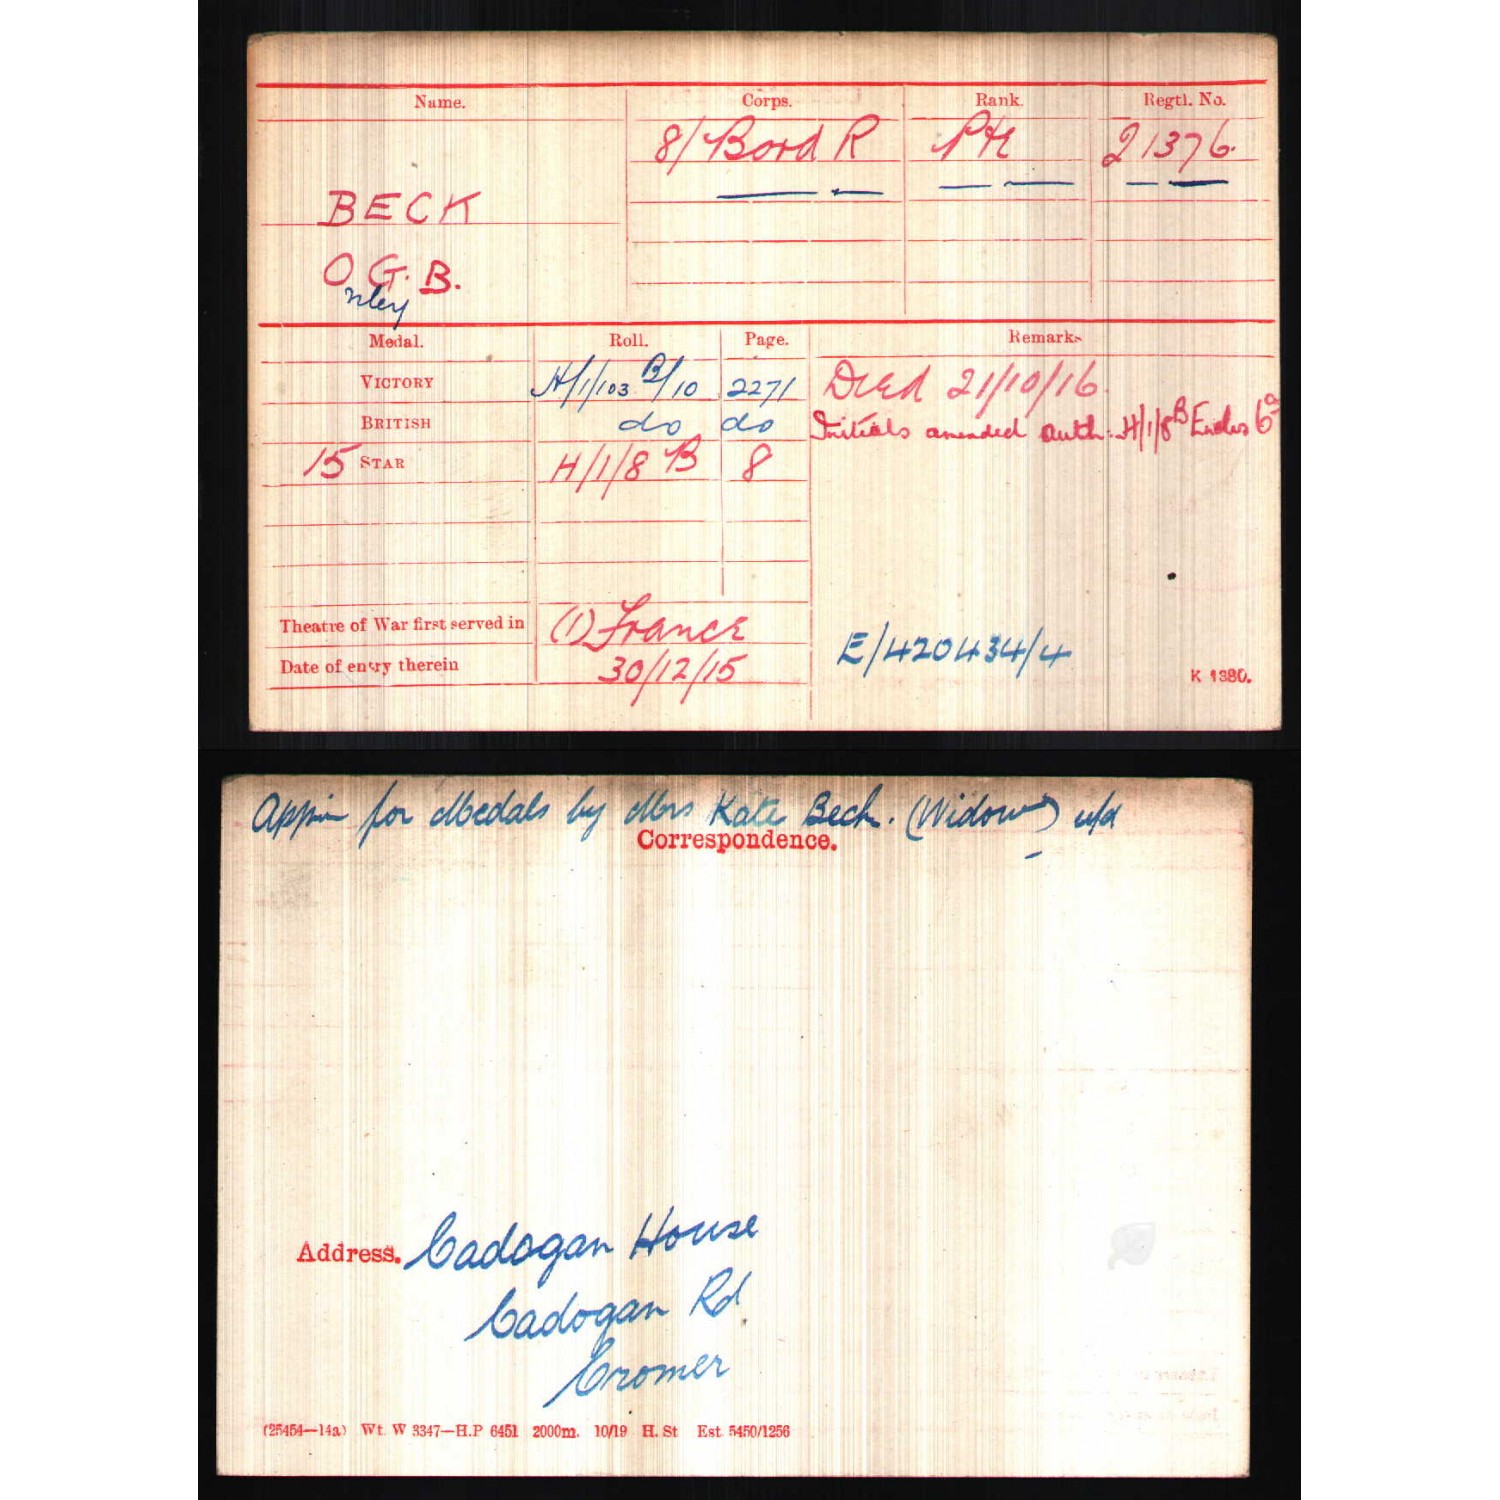 Name. Corps. Rank. Regtl. No.
8/Bord R Pte 21376.
BECK
O. G. B.
nley
Medal. Roll. Page. Remarks
VICTORY H/1/103 B/10 2271 Died 21/10/16.
BRITISH do do Initials amended auth. H/1/8B Endrs 6a
15 STAR H/1/8 B 8
Theatre of War first served in (1) France
Date of entry therein 30/12/15
E/420434/4
K 1380.
Appln for Medals by Mrs Kate Beck. (Widow)
Correspondence.
Address. Cadogan House
Cadogan Rd
Cromer
(25454—14a) Wt. W 3347—H.P 6451 2000m. 10/19 H. St Est. 5450/1256